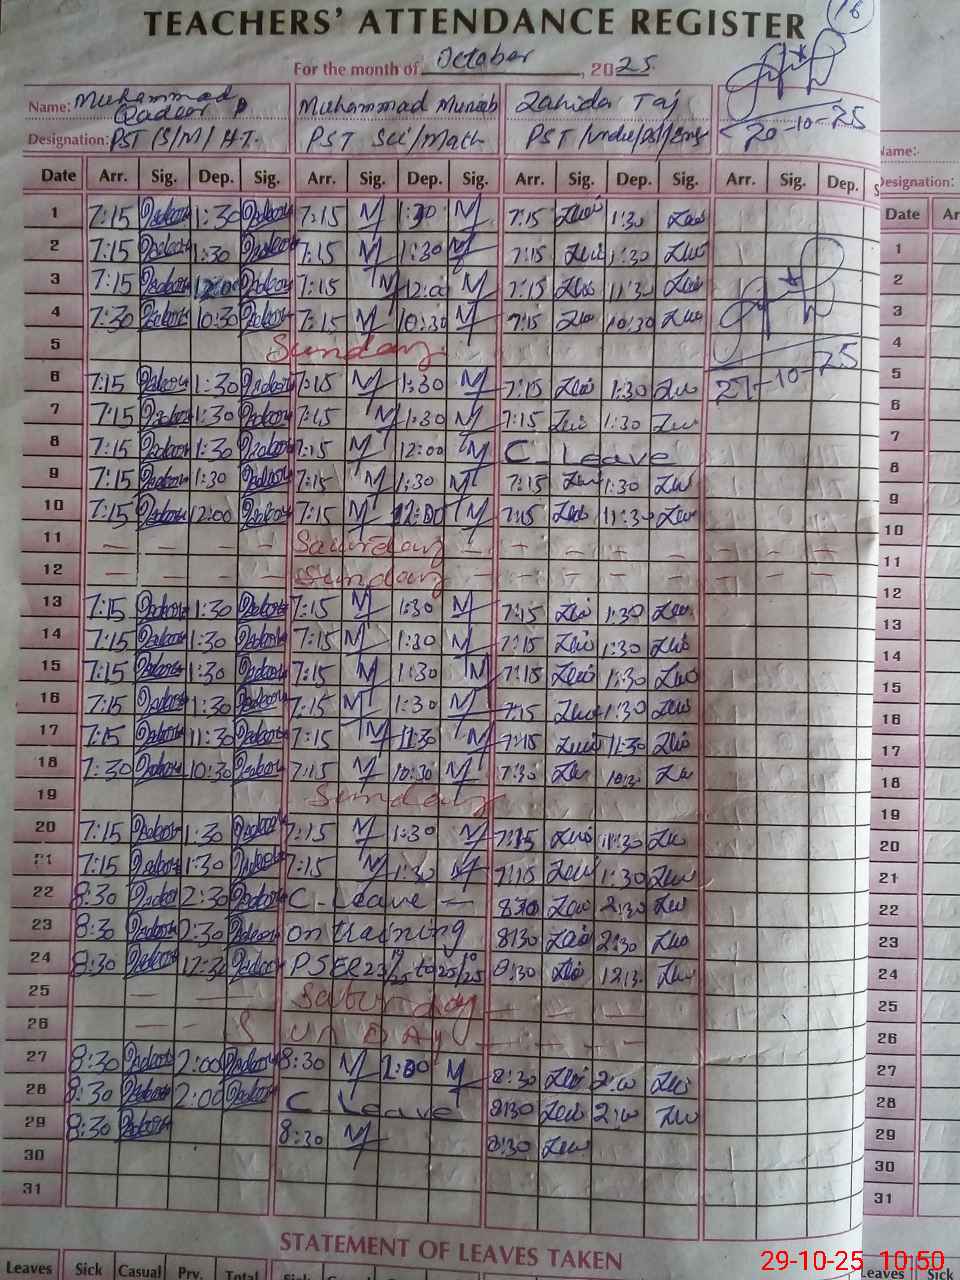 16
TEACHERS' ATTENDANCE REGISTER
For the month of October, 2025
Name: Muhammad Qadeer Muhammad Muneeb Zahida Taj
Designation: PST /S/M/ H.T. PST Sci/Math PST /
20-10-25
Name:
Designation:
Date Arr. Sig. Dep. Sig. Arr. Sig. Dep. Sig. Arr. Sig. Dep. Sig. Arr. Sig. Dep. S Date Ar
1 7:15 Qadeer 1:30 Qadeer 7:15 M 1:30 M 7:15 1:30 1
2 7:15 Qadeer 1:30 Qadeer 7:15 M 1:30 M 7:15 1:30 2
3 7:15 Qadeer 12:00 Qadeer 7:15 M 12:00 M 7:15 11:30 3
4 7:30 Qadeer 10:30 Qadeer 7:15 M 10:30 M 7:15 10:30 4
5 Sunday 27-10-25 5
6 7:15 Qadeer 1:30 Qadeer 7:15 M 1:30 M 7:15 1:30 6
7 7:15 Qadeer 1:30 Qadeer 7:15 M 1:30 M 7:15 1:30 7
8 7:15 Qadeer 1:30 Qadeer 7:15 M 12:00 M C_Leave 8
9 7:15 Qadeer 1:30 Qadeer 7:15 M 1:30 M 7:15 1:30 9
10 7:15 Qadeer 12:00 Qadeer 7:15 M 12:00 M 7:15 11:30 10
11 - - - - Saturday - - - - - - 11
12 - - - - Sunday - - - - - - 12
13 7:15 Qadeer 1:30 Qadeer 7:15 M 1:30 M 7:15 1:30 13
14 7:15 Qadeer 1:30 Qadeer 7:15 M 1:30 M 7:15 1:30 14
15 7:15 Qadeer 1:30 Qadeer 7:15 M 1:30 M 7:15 1:30 15
16 7:15 Qadeer 1:30 Qadeer 7:15 M 1:30 M 7:15 1:30 16
17 7:15 Qadeer 11:30 Qadeer 7:15 M 11:30 M 7:15 11:30 17
18 7:30 Qadeer 10:30 Qadeer 7:15 M 10:30 M 7:30 18
19 Sunday 19
20 7:15 Qadeer 1:30 Qadeer 7:15 M 1:30 M 7:15 20
21 7:15 Qadeer 1:30 Qadeer 7:15 M 1:30 M 7:15 1:30 21
22 8:30 Qadeer 2:30 Qadeer C-Leave - 8:30 2:30 22
23 8:30 Qadeer 2:30 Qadeer on training 8:30 2:30 23
24 8:30 Qadeer 12:3 Qadeer PSER 8:30 24
25 - - - Saturday - - - 25
26 - - - SUNDAY - - - - 26
27 8:30 Qadeer 2:00 Qadeer 8:30 M 2:00 M 8:30 2:00 27
28 8:30 Qadeer 2:00 Qadeer C_Leave 8:30 2:00 28
29 8:30 Qadeer 8:30 M 8:30 29
30 30
31 31
STATEMENT OF LEAVES TAKEN
Leaves Sick Casual Prv. Total Sick Leaves Sick
29-10-25 10:50